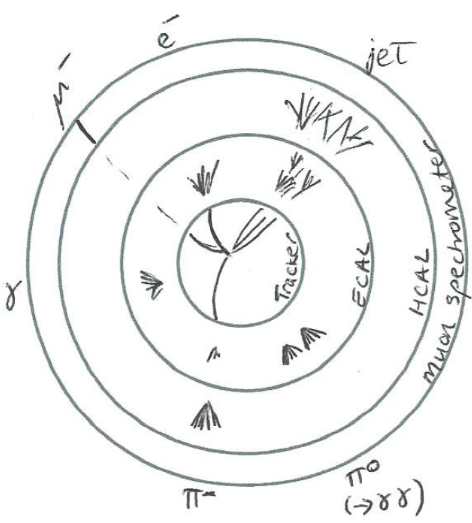 e⁻
jet
μ⁻
γ
Tracker
ECAL
HCAL
muon spectrometer
π⁻
π⁰
(→γγ)